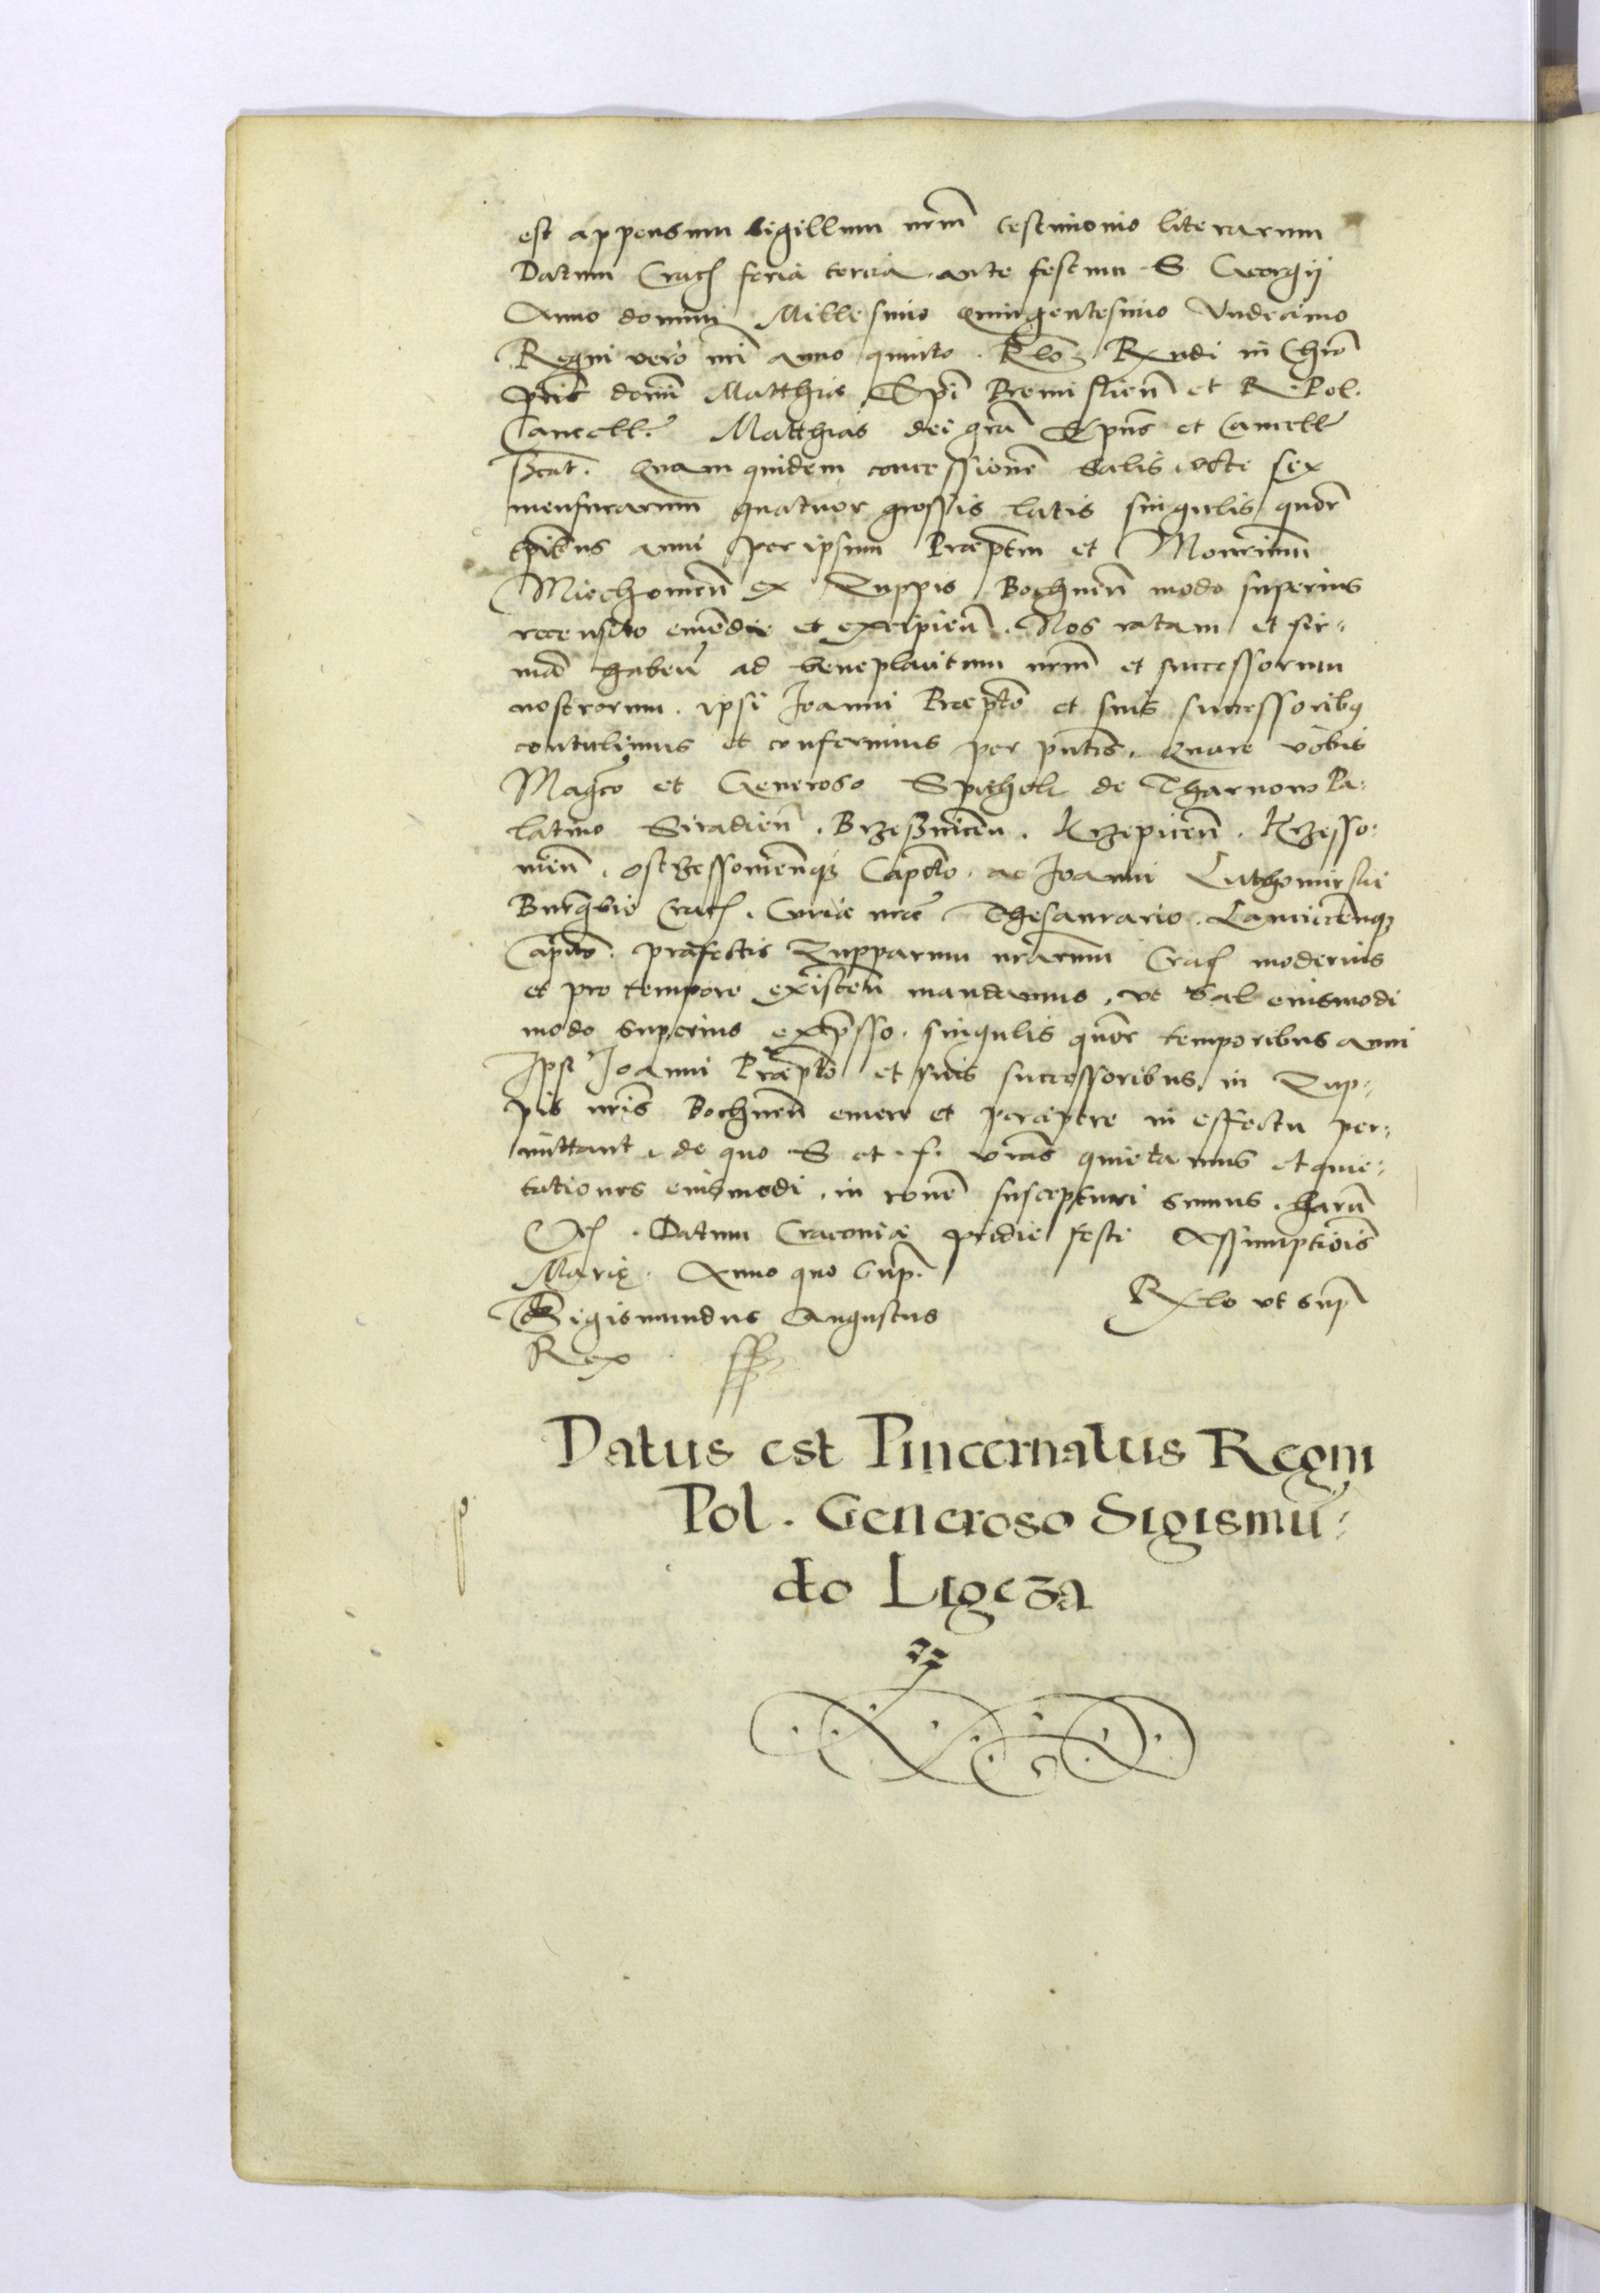 est appensum Sigillum nrm̄ testimonio literarum
Datum Crac̄ feria tertia ante festum S Georgij
Anno domini Millesimo Quingentesimo Undecimo
Regni vero nri anno quinto. Rlo Rxndi in Chro
ptris domi Matthiæ Epi Premislien̄ et R. Pol.
Cancell. Matthias dei gra Epus et Cancell
sszt. Quam quidem concessionem Salis, octo sex
mensurarum quatuor grossis latis singulis quor
tpibus anni per ipsum Præptm et Mon̄rium
Miechouien̄ ex Zuppis Bochnen̄ modo superius
recensito emēdæ et excipien̄. Nos ratam et fir:
mā haben̄ ad beneplacitum nrm̄ et successorum
nostrorum. ipsi Joanni Præpto et suis successoribq
contulimus et conferimus per pntes. Quare vobis
Magco et Generoso Spithek de Tharnow Pa:
latino Siradien̄. Brzesznicen. Krzepicen̄. Krzesso:
uien̄. Ostrzessouien̄q3 Capto. ac Joanni Luthomirski
Burgbio Crac̄. Curiæ nræ Thesaurario. Lanciciēnq3
Capto. præfectis Zupparum nrarum Crac̄ modernis
et pro tempore existen̄ mandamus, vt Sal eiusmodi
modo superius expresso. singulis quor temporibus anni
Ipsi Joanni Præpto et suis successoribus in Zup:
pis nris Bochnen̄ emere et percipere in effectu per:
mittant, de quo S et f. vras quietamus et quie:
tationes eiusmodi, in ronem suscepturi sumus. harū
Datum Cracouiæ pridie festi Assumptiois
Marię. Anno quo Sup.
Sigismundus Augustus
Rex
Rxlo vt sup
Datus est Pincernatus Regni
Pol. Generoso Sigismū:
do Ligeza